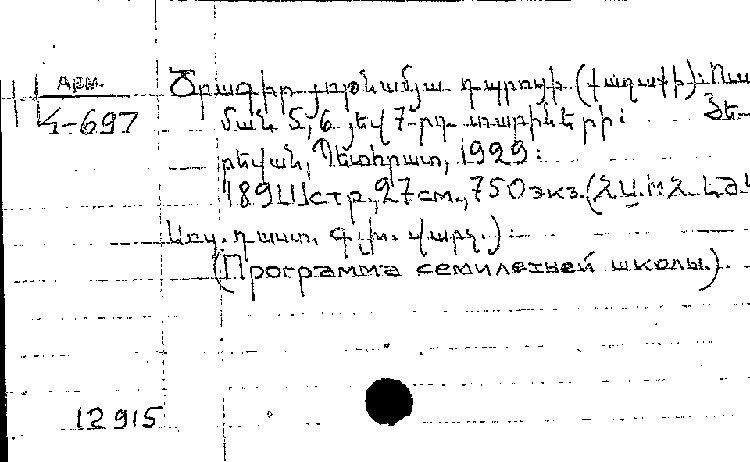 Арм.
4-697
Ծրագիր յոթնամյա դպրոցի (քաղաքի): Ուս
ման 5, 6 յեվ 7-րդ տարիների: Յե-
րեվան, Պետհրատ, 1929:
189[1]стр., 27см., 750экз. (Հ.Ս.Խ.Հ. Լժ
Սոց. դաստ. գլխ. վարչ.):
(Программа семилетней школы.)
12915